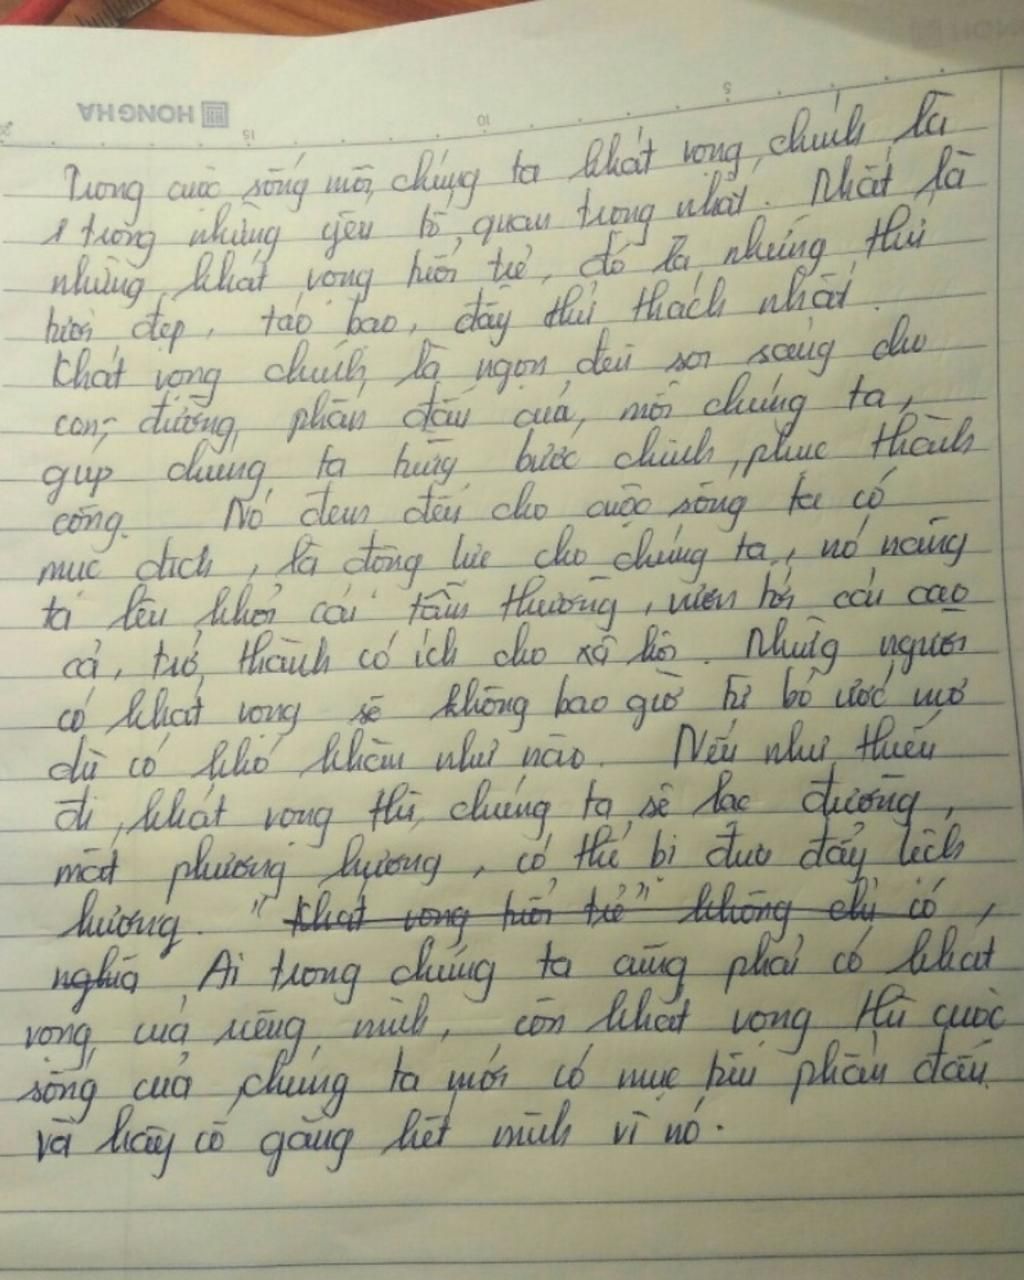 HONG HA
5
10
15
20
Trong cuộc sống mỗi chúng ta khát vọng chính là
1 trong những yếu tố quan trọng nhất. Nhất là
những khát vọng tuổi trẻ, đó là những thứ
tươi đẹp, táo bạo, đầy thử thách nhất.
Khát vọng chính là ngọn đèn soi sáng cho
con đường phấn đấu của mỗi chúng ta,
giúp chúng ta từng bước chinh phục thành
công. Nó đem đến cho cuộc sống ta có
mục đích, là động lực cho chúng ta, nó nâng
ta lên khỏi cái tầm thường, vươn tới cái cao
cả, trở thành có ích cho xã hội. Những người
có khát vọng sẽ không bao giờ từ bỏ ước mơ
dù có khó khăn như nào. Nếu như thiếu
đi khát vọng thì chúng ta sẽ lạc đường,
mất phương hướng, có thể bị đưa đẩy lệch
hướng. "Khát vọng tuổi trẻ" không chỉ có,
nghĩa Ai trong chúng ta cũng phải có khát
vọng của riêng mình, còn khát vọng thì cuộc
sống của chúng ta mới có mục tiêu phấn đấu
và hãy cố gắng hết mình vì nó.